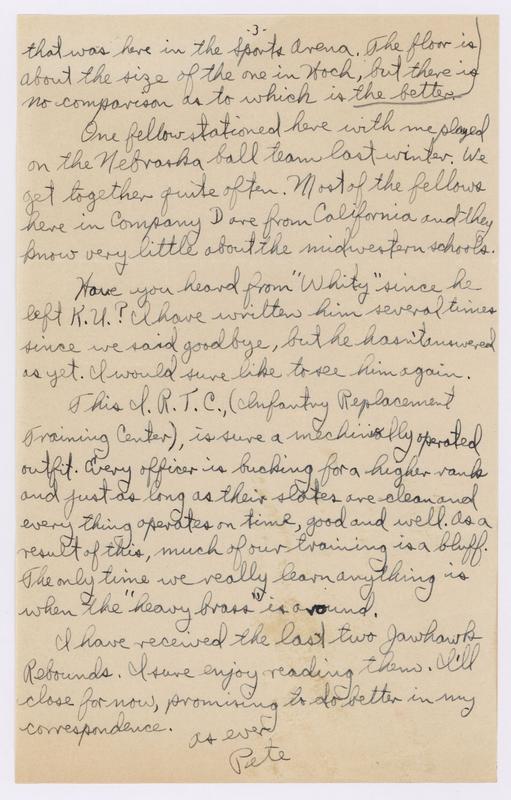 -3-
that was here in the Sports Arena. The floor is
about the size of the one in Hoch, but there is
no comparison as to which is the better.
One fellow stationed here with me played
on the Nebraska ball team last winter. We
get together quite often. Most of the fellows
here in Company D are from California and they
know very little about the midwestern schools.
Have you heard from "Whity" since he
left K.U.? I have written him several times
since we said goodbye, but he hasn't answered
as yet. I would sure like to see him again.
This I.R.T.C., (Infantry Replacement
Training Center), is sure a mechinally operated
outfit. Every officer is bucking for a higher rank
and just as long as their slates are clean and
every thing operates on time, good and well. As a
result of this, much of our training is a bluff.
The only time we really learn anything is
when the "heavy brass" is around.
I have received the last two Jawhawk
Rebounds. I sure enjoy reading them. I'll
close for now, promising to do better in my
correspondence.
As ever
Pete